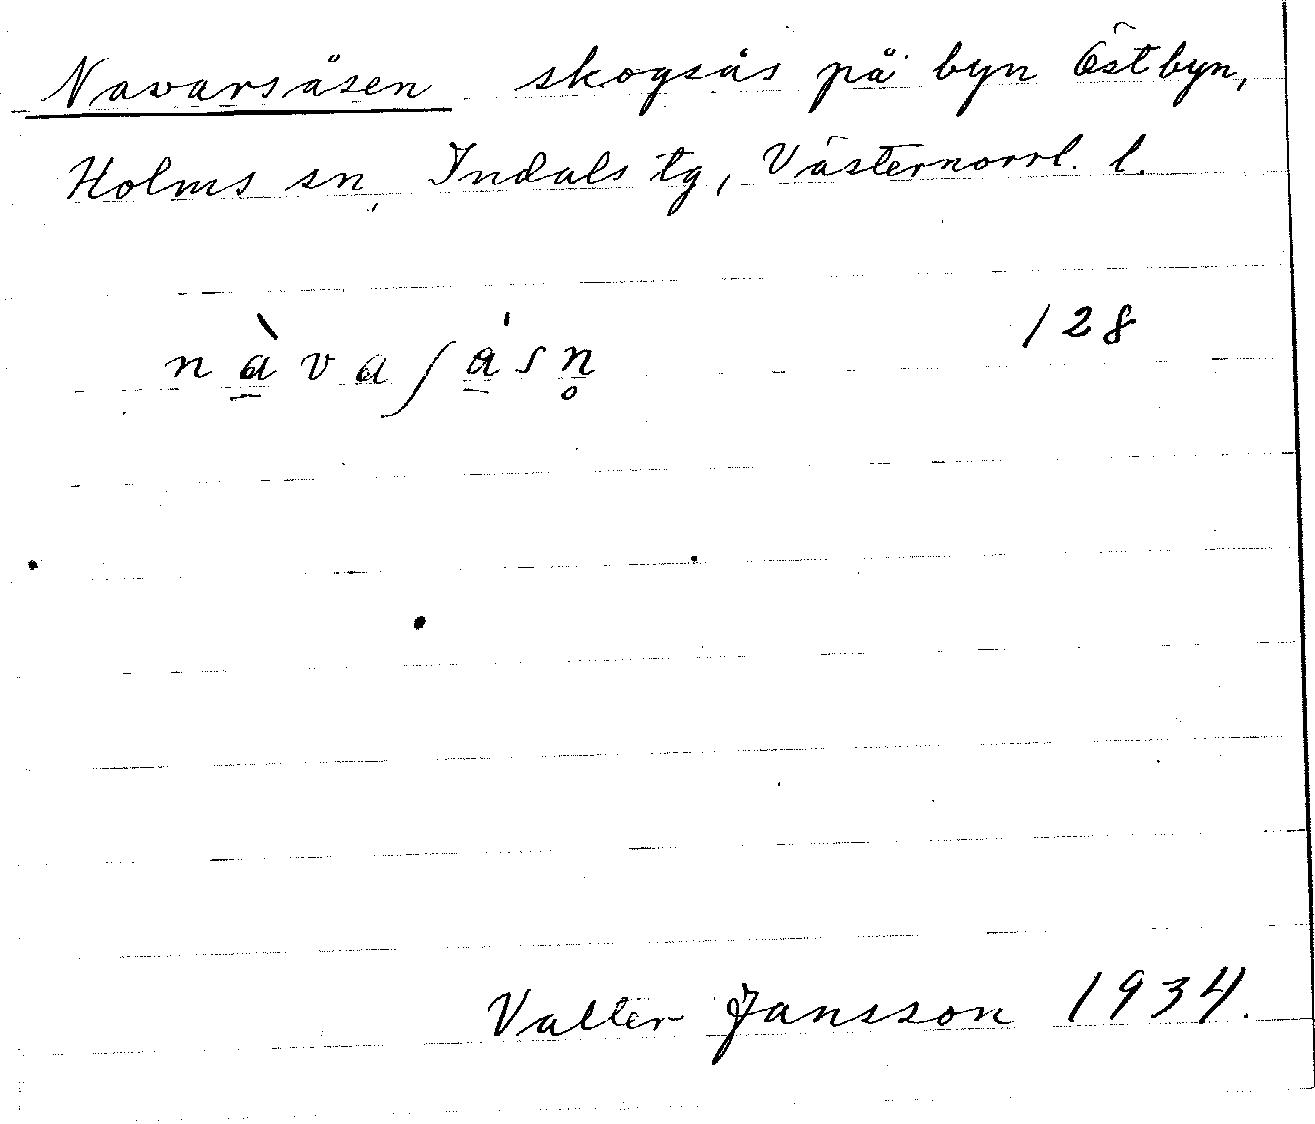 Navarsåsen skogsås på byn Östbyn,
Holms sn, Indals tg, Västernorrl. l.
nàvaʃåsn̥ 128
Valter Jansson 1934.